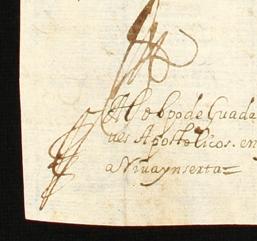 Al obpo de Guada
ves Apostolicos. en
a Nivaynserta=